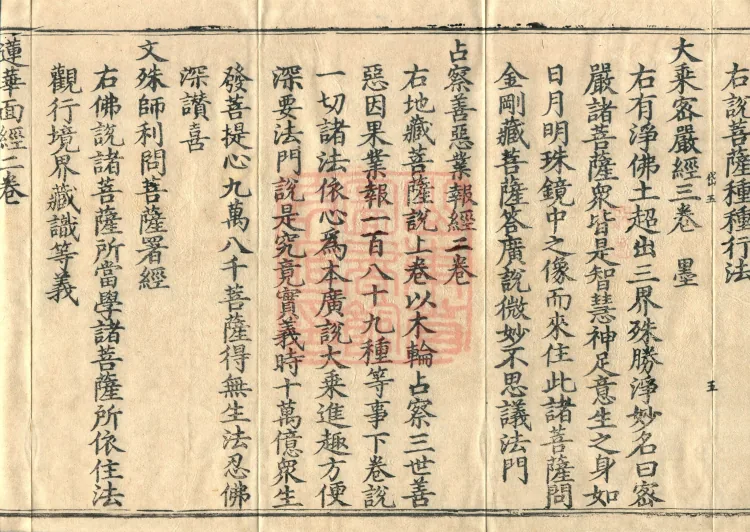 右說菩薩種種行法
岱五
五
大乘密嚴經三卷 墨
右有淨佛土超出三界殊勝淨妙名曰密
嚴諸菩薩衆皆是智慧神足意生之身如
日月明珠鏡中之像而來住此諸菩薩問
金剛藏菩薩答廣說微妙不思議法門
占察善惡業報經二卷
右地藏菩薩說上卷以木輪占察三世善
惡因果業報一百八十九種等事下卷說
一切諸法依心爲本廣說大乘進趣方便
深要法門說是究竟實義時十萬億衆生
發菩提心九萬八千菩薩得無生法忍佛
深讚喜
文殊師利問菩薩署經
右佛說諸菩薩所當學諸菩薩所依住法
觀行境界藏識等義
蓮華面經二卷